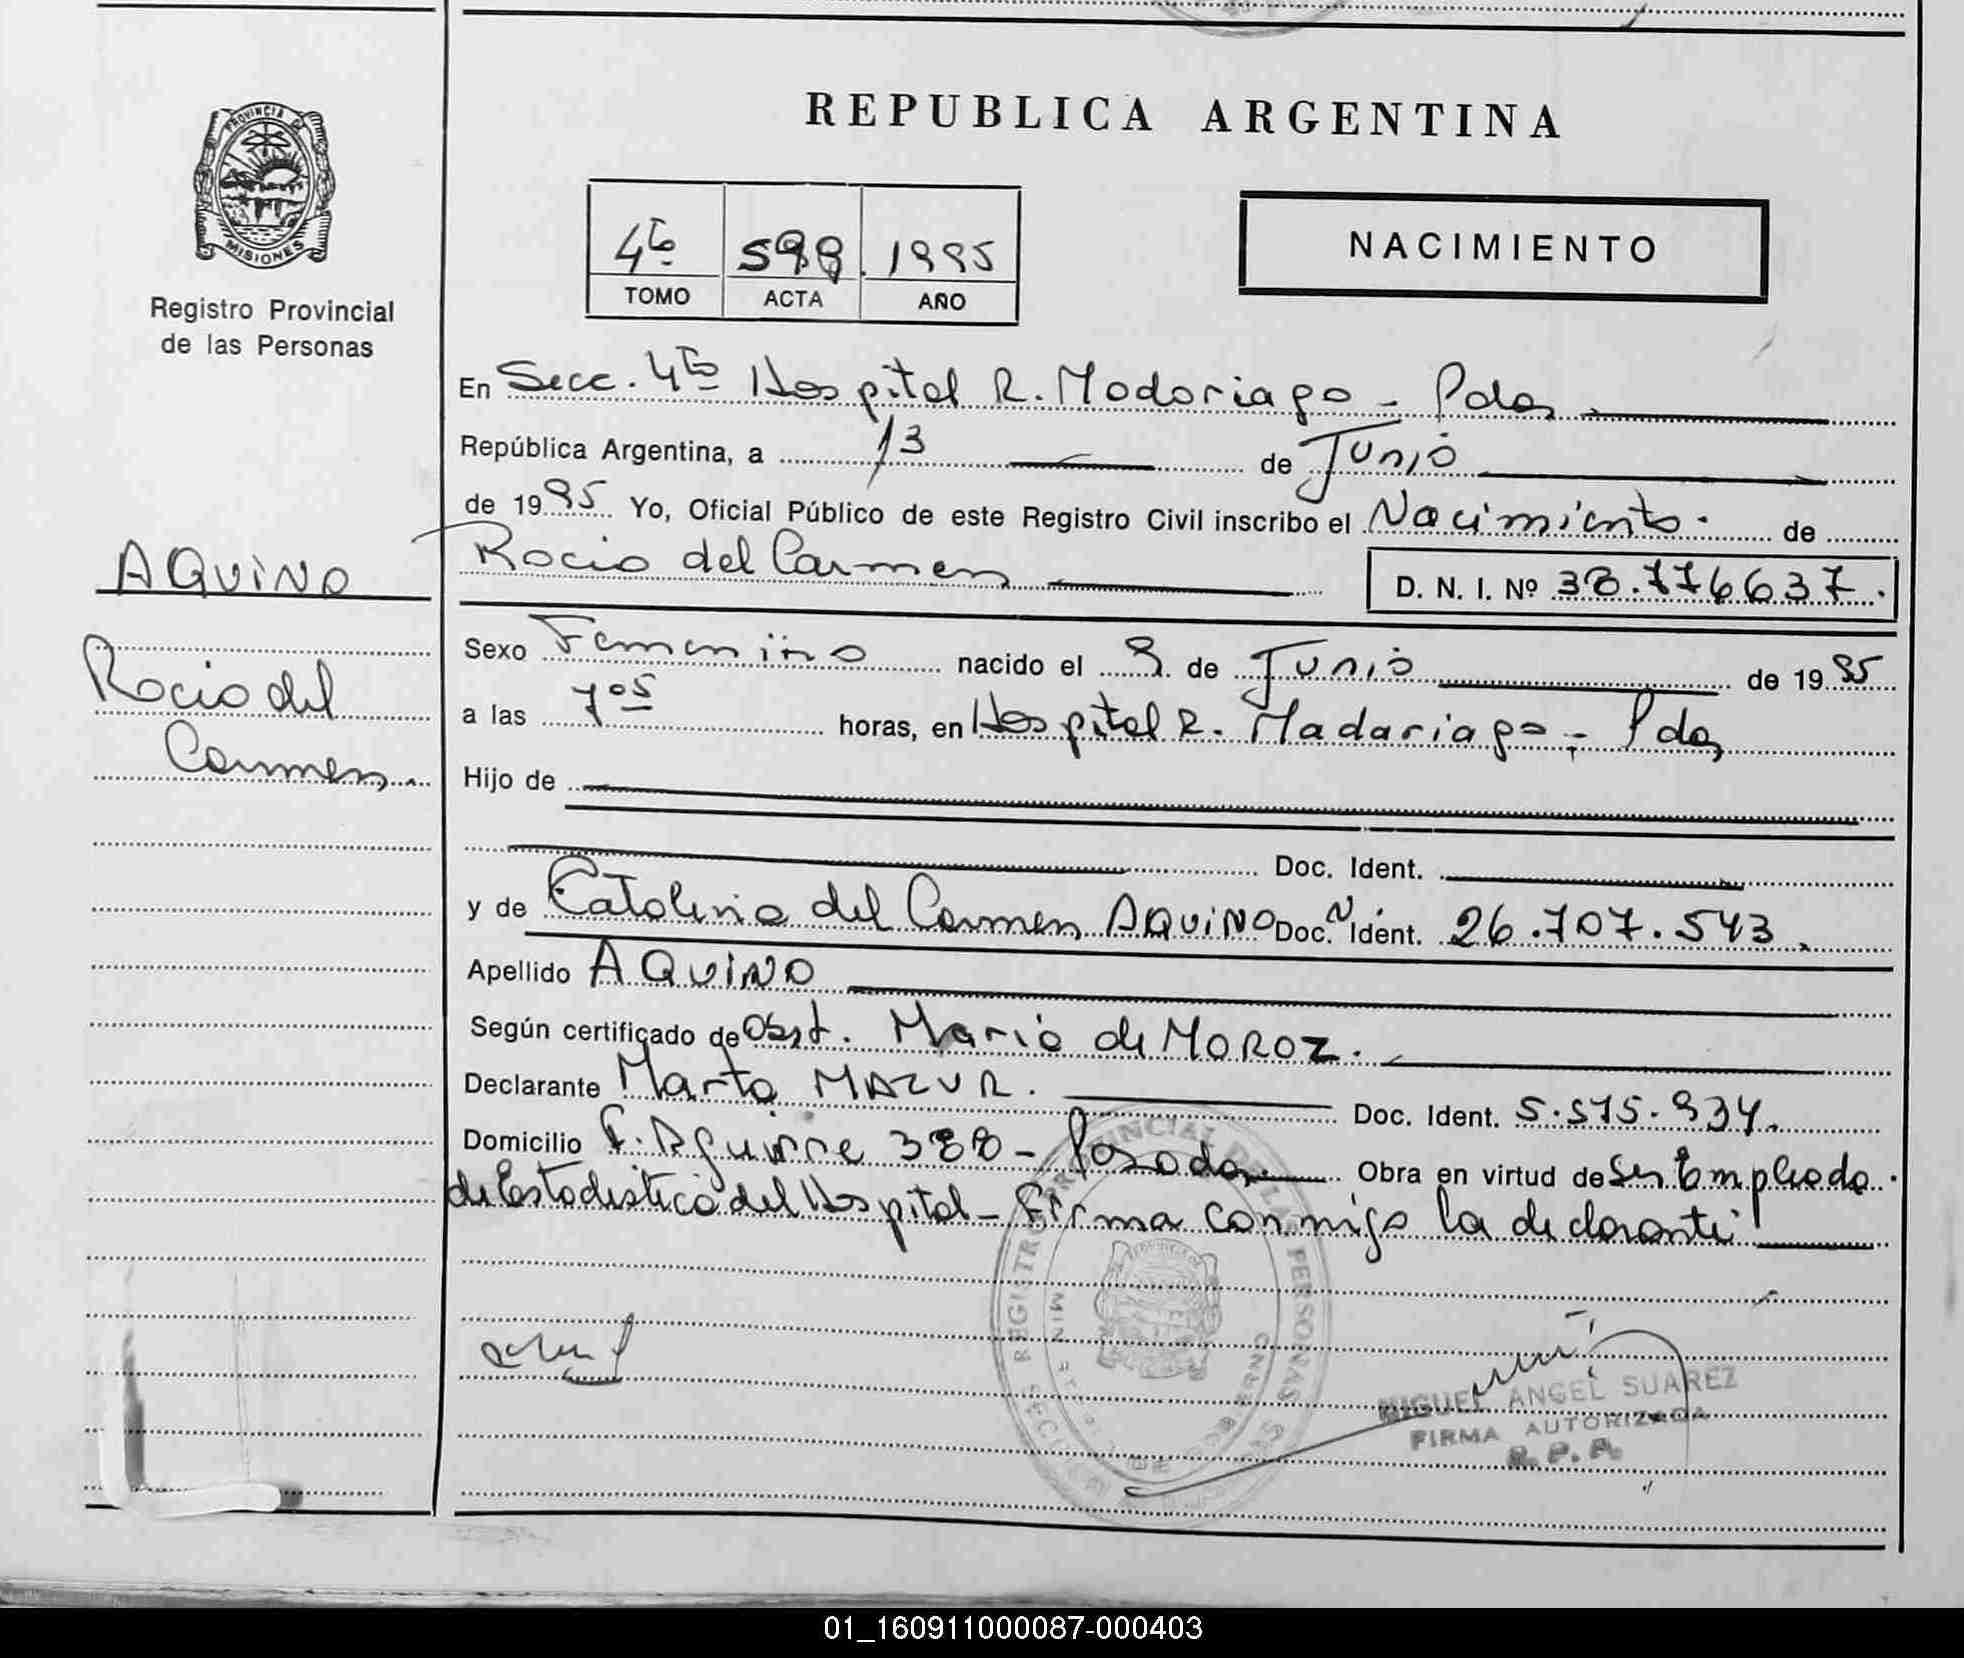 REPUBLICA ARGENTINA
PROVINCIA DE MISIONES
Registro Provincial
de las Personas
4to 1995
TOMO ACTA AÑO
NACIMIENTO
En Secc. 4to Hospital R. Madariaga - Pdas
República Argentina, a 13 de Junio
de 1995 Yo, Oficial Público de este Registro Civil inscribo el Nacimiento. de
Rocio del Carmen D. N. I. Nº 38.776637.
AQUINO
Rocio del
Carmen.
Sexo Femenino nacido el 9 de Junio de 1995
a las 7 05 horas, en Hospital R. Madariaga - Pdas
Hijo de
Doc. Ident.
y de Catalina del Carmen AQUINO Doc. Ident. 26.707.543.
Apellido AQUINO
Según certificado de Obst. Maria de MOROZ.
Declarante Marta MAZUR. Doc. Ident. 5.575.934.
Domicilio F. Aguirre 388 - Posadas. Obra en virtud de Ser Empleada.
de Estadistica del Hospital - Firma conmigo la declarante
REGISTRO PROVINCIAL DE LAS PERSONAS
MIGUEL ANGEL SUAREZ
FIRMA AUTORIZADA
R. P. P.
01_160911000087-000403